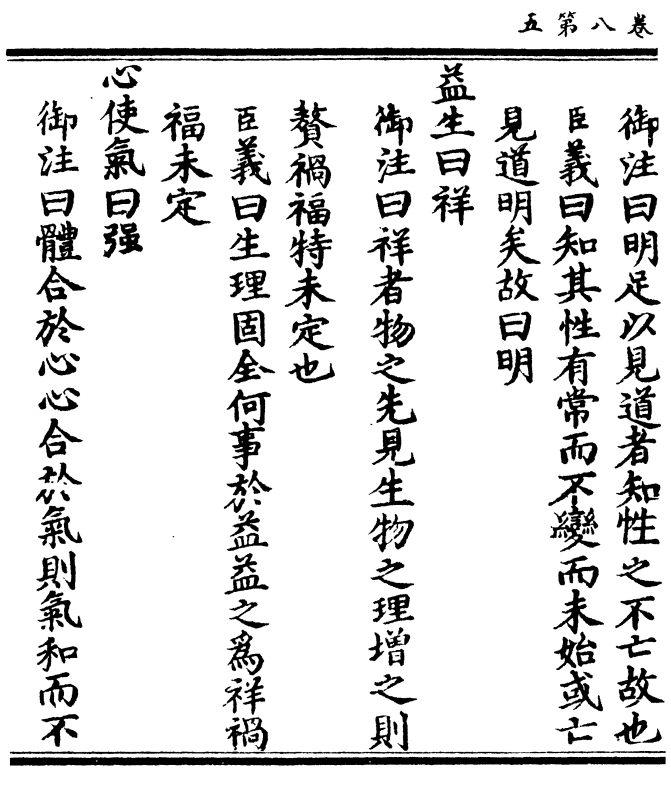 卷八第五
御注曰明足以見道者知性之不亡故也
臣義曰知其性有常而不變而未始或亡
見道明矣故曰明
益生曰祥
御注曰祥者物之先見生物之理增之則
贅禍福特未定也
臣義曰生理固全何事於益益之爲祥禍
福未定
心使氣曰强
御注曰體合於心心合於氣則氣和而不